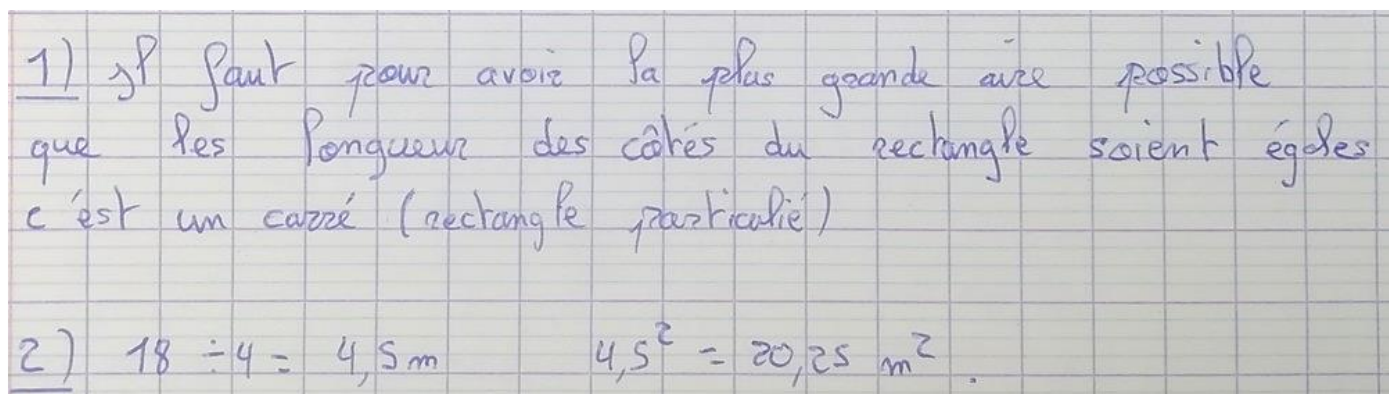 1) Il faut pour avoir la plus grande aire possible
que les longueur des côtés du rectangle soient égales
c'est un carré (rectangle particulié)
2) 18 ÷ 4 = 4,5 m 4,5² = 20,25 m².